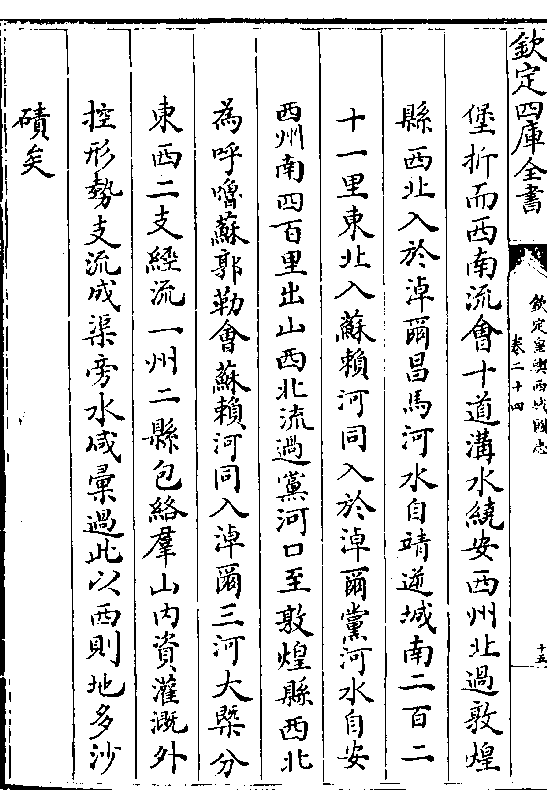 欽定四庫全書
欽定皇輿西域圖志
卷二十四
十五
堡折而西南流會十道溝水繞安西州北過敦煌
縣西北入於淖爾昌馬河水自靖逆城南二百二
十一里東北入蘇賴河同入於淖爾黨河水自安
西州南四百里出山西北流過黨河口至敦煌縣西北
為呼嚕蘇郭勒會蘇賴河同入淖爾三河大槩分
東西二支經流一州二縣包絡羣山內資灌溉外
控形勢支流成渠旁水咸彙過此以西則地多沙
磧矣